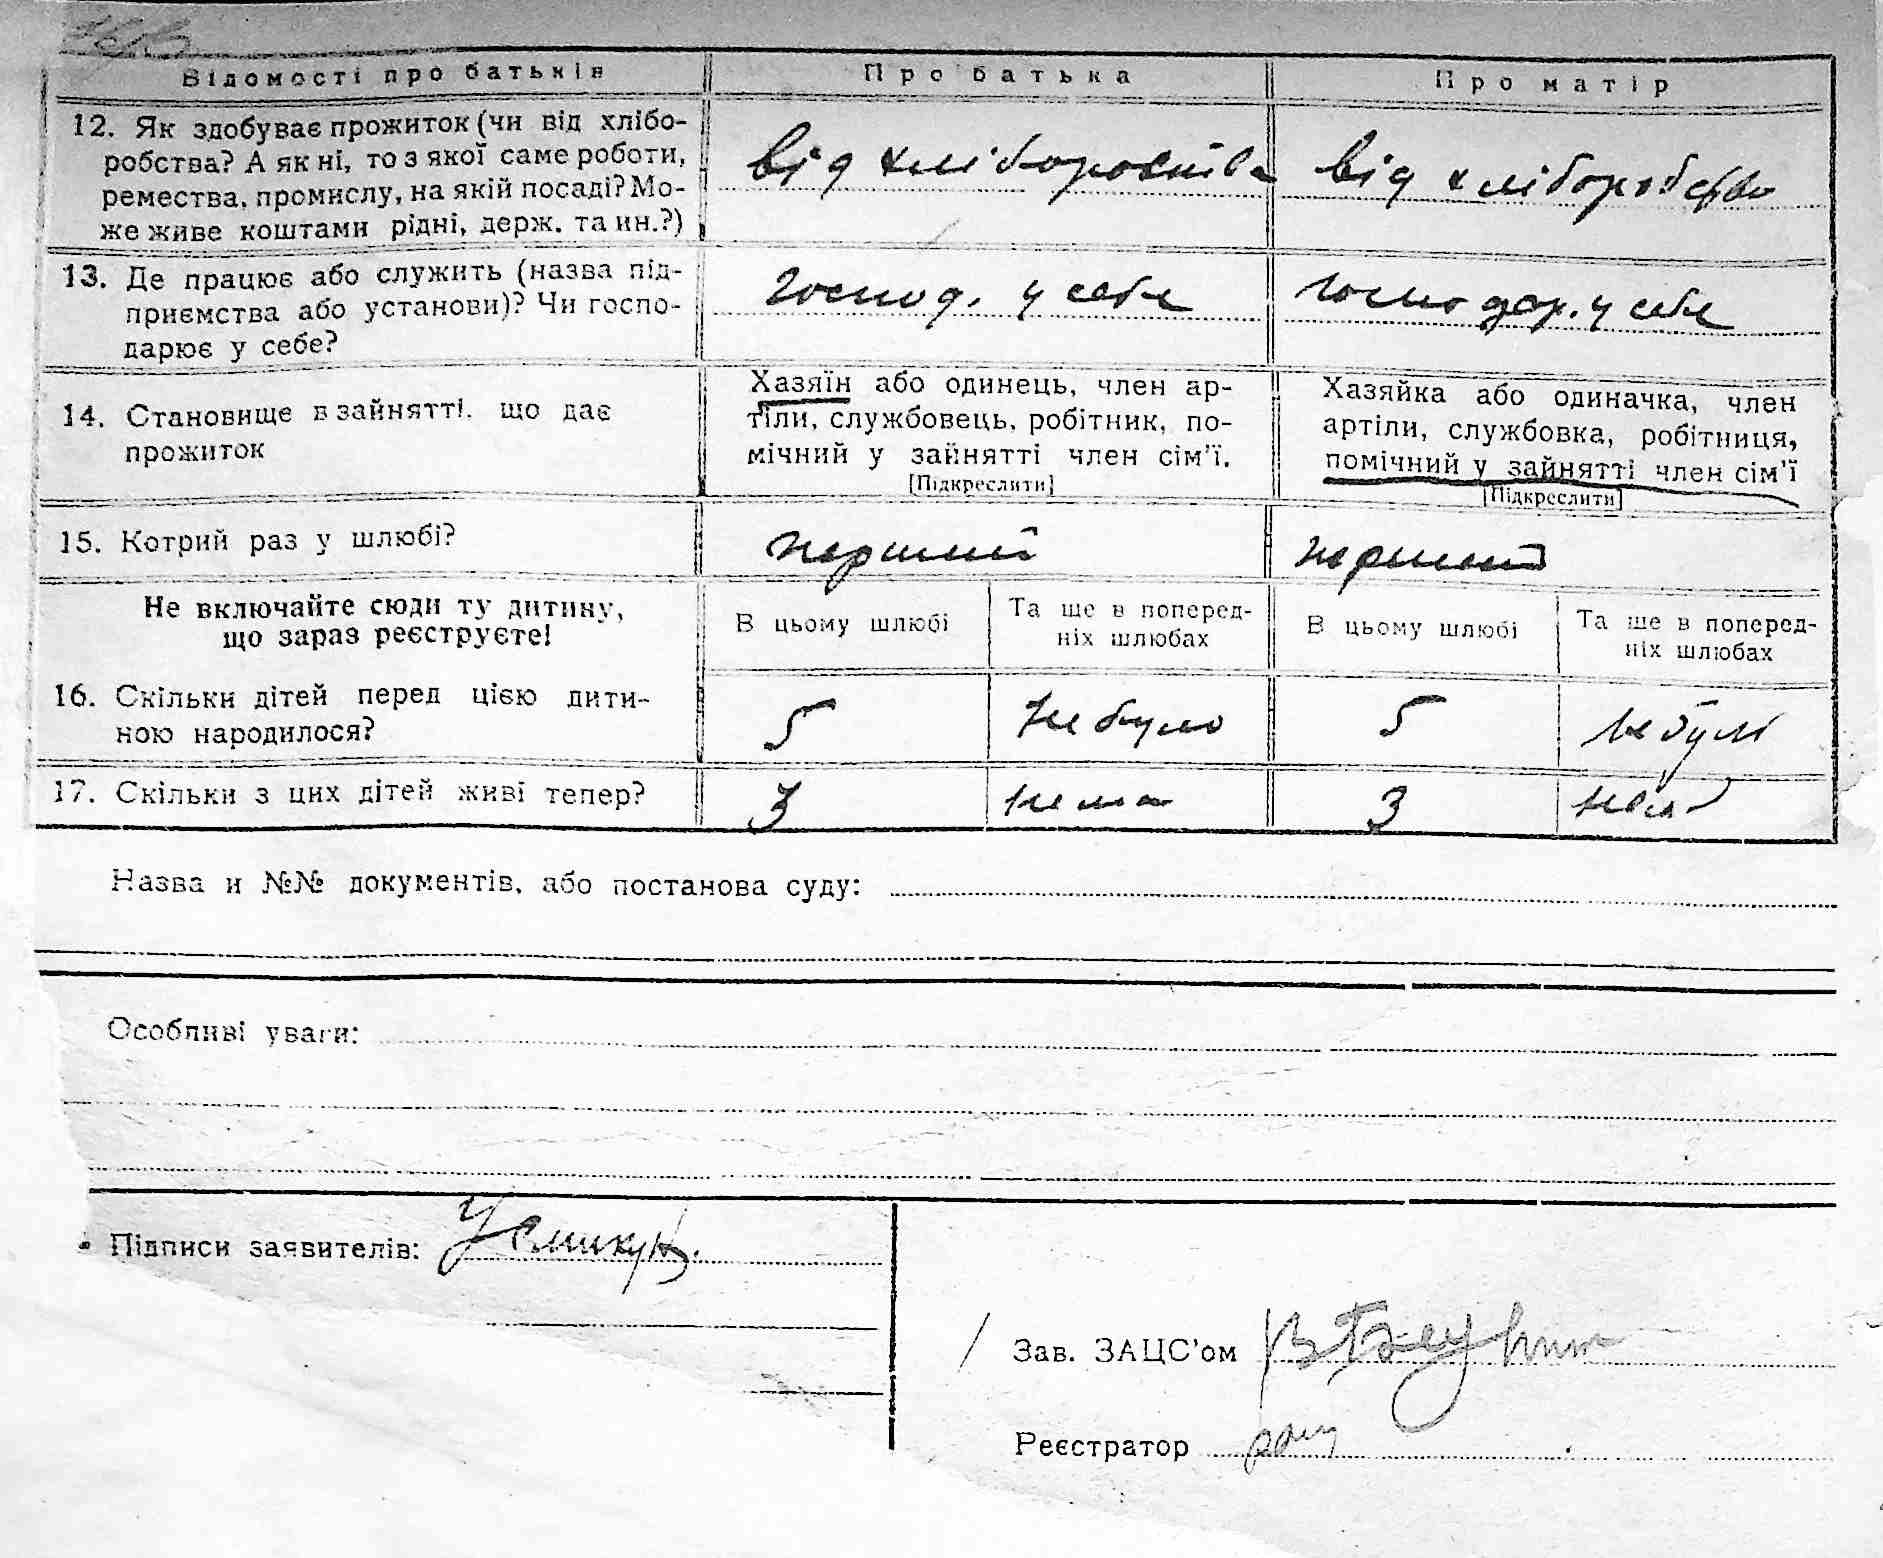 Відомості про батьків
Про батька
Про матір
12. Як здобуває прожиток (чи від хлібо-
робства? А як ні, то з якої саме роботи,
ремества, промислу, на якій посаді? Мо-
же живе коштами рідні, держ. та ин.?)
від хліборобства
від хліборобства
13. Де працює або служить (назва під-
приємства або установи)? Чи госпо-
дарює у себе?
господ. у себе
господар. у себе
14. Становище в зайнятті, що дає
прожиток
Хазяїн або одинець, член ар-
тіли, службовець, робітник, по-
мічний у зайнятті член сім'ї.
[Підкреслити]
Хазяйка або одиначка, член
артіли, службовка, робітниця,
помічний у зайнятті член сім'ї
[Підкреслити]
15. Котрий раз у шлюбі?
перший
перший
Не включайте сюди ту дитину,
що зараз реєструєте!
В цьому шлюбі
Та ще в поперед-
ніх шлюбах
В цьому шлюбі
Та ще в поперед-
ніх шлюбах
16. Скільки дітей перед цією дити-
ною народилося?
5
не було
5
не було
17. Скільки з цих дітей живі тепер?
3
нема
3
нема
Назва и №№ документів, або постанова суду:
Особливі уваги:
Підписи заявителів:
Зав. ЗАЦС'ом
Реєстратор